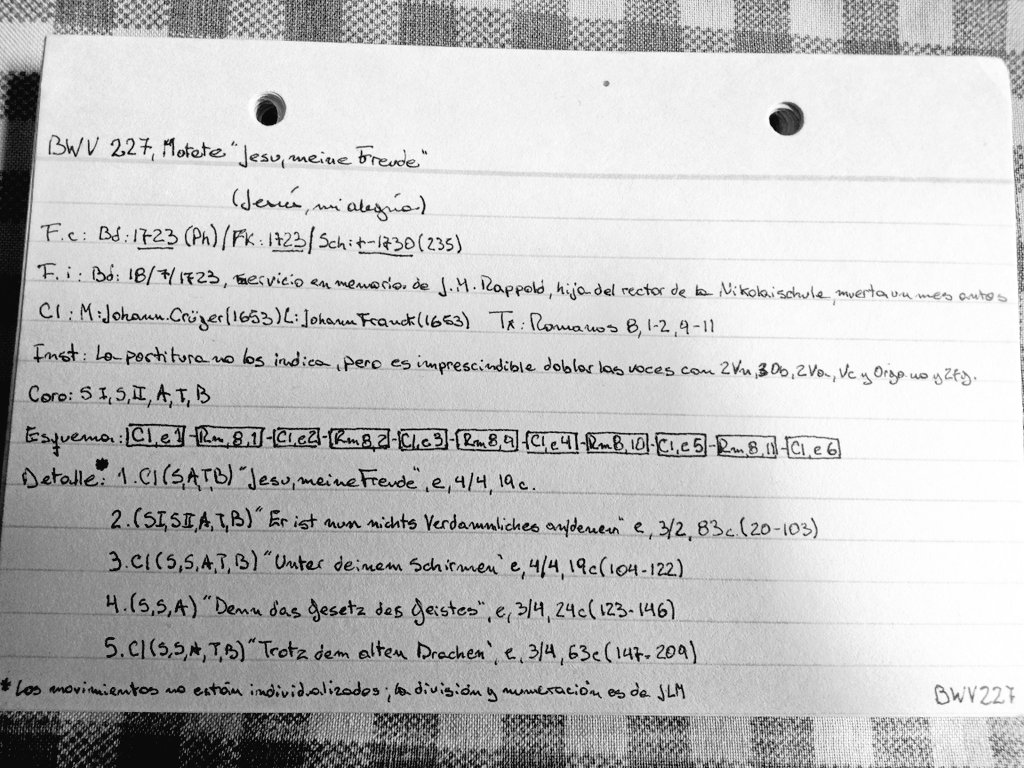 BWV 227, Motete "Jesu, meine Freude"
(Jesús, mi alegría)
F.c: Bd: 1723 (Ph) / FK: 1723 / Sch: +-1730 (235)
F.i: Bd: 18/7/1723, servicio en memoria de J.M. Rappold, hija del rector de la Nikolaischule, muerta un mes antes
Cl: M: Johann Crüger (1653) L: Johann Franck (1653) Tx: Romanos 8, 1-2, 9-11
Inst: La partitura no los indica, pero es imprescindible doblar las voces con 2Vn, 3Ob, 2Va, Vc y Órgano y 2Fg.
Coro: S I, S, II, A, T, B
Esquema: Cl, e1 - Rm, 8, 1 - Cl, e2 - Rm 8, 2 - Cl, e3 - Rm 8, 9 - Cl, e4 - Rm 8, 10 - Cl, e5 - Rm 8, 11 - Cl, e6
Detalle:* 1. Cl (S, A, T B) "Jesu, meine Freude", e, 4/4, 19 c.
2. (SI, SII, A, T, B) "Er ist nun nichts Verdammliches an denen" e, 3/2, 83c. (20-103)
3. Cl (S, S, A, T, B) "Unter deinem Schirmen" e, 4/4, 19c (104-122)
4. (S, S, A) "Denn das Gesetz des Geistes", e, 3/4, 24c (123-146)
5. Cl (S, S, A, T, B) "Trotz dem alten Drachen", e, 3/4, 63c (147-209)
* Los movimientos no están individualizados; la división y numeración es de JLM
BWV 227